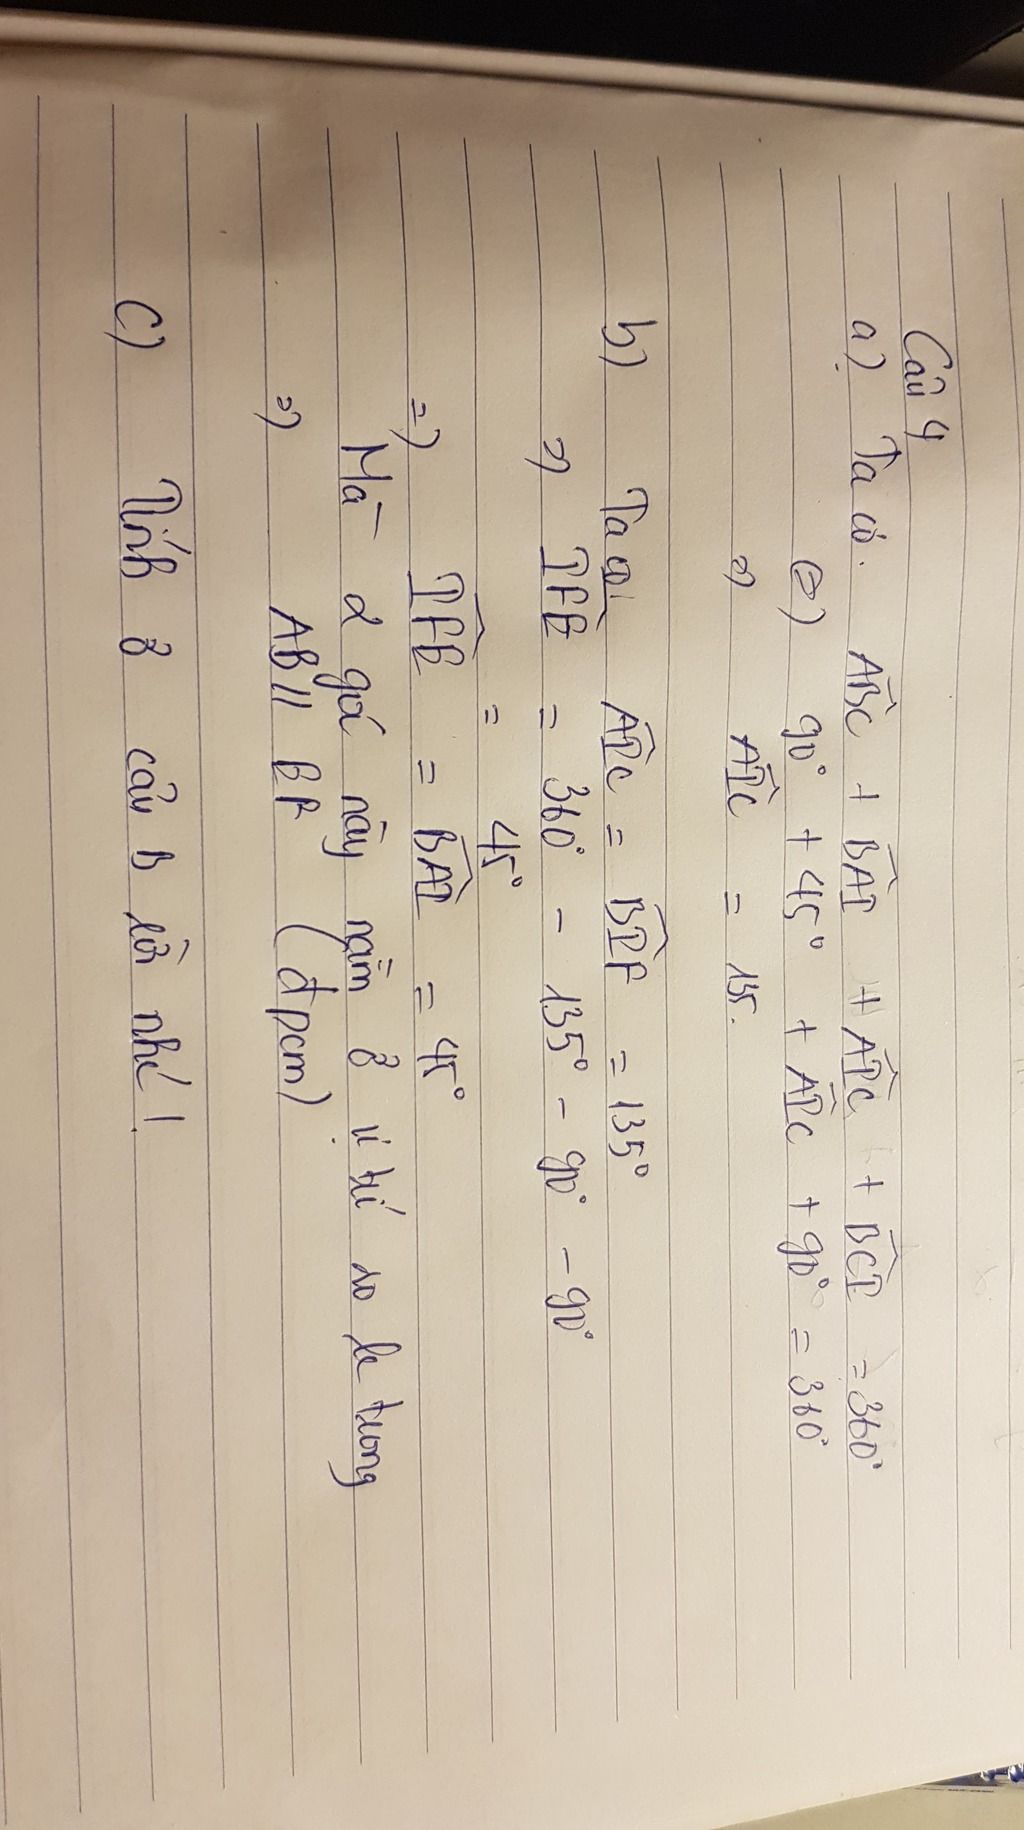 Câu 4
a) Ta có. ABC + BAI + AIC + BCI = 360°
⇔) 90° + 45° + AIC + 90° = 360°
=) AIC = 135.
b) Ta có AIC = BIF = 135°
=) IFE = 360° - 135° - 90° - 90°
= 45°
=) IFE = BAI = 45°
Mà 2 góc này nằm ở vị trí so le trong
=) AB // BF (đpcm)
c) Tính ở câu B rồi nhé!